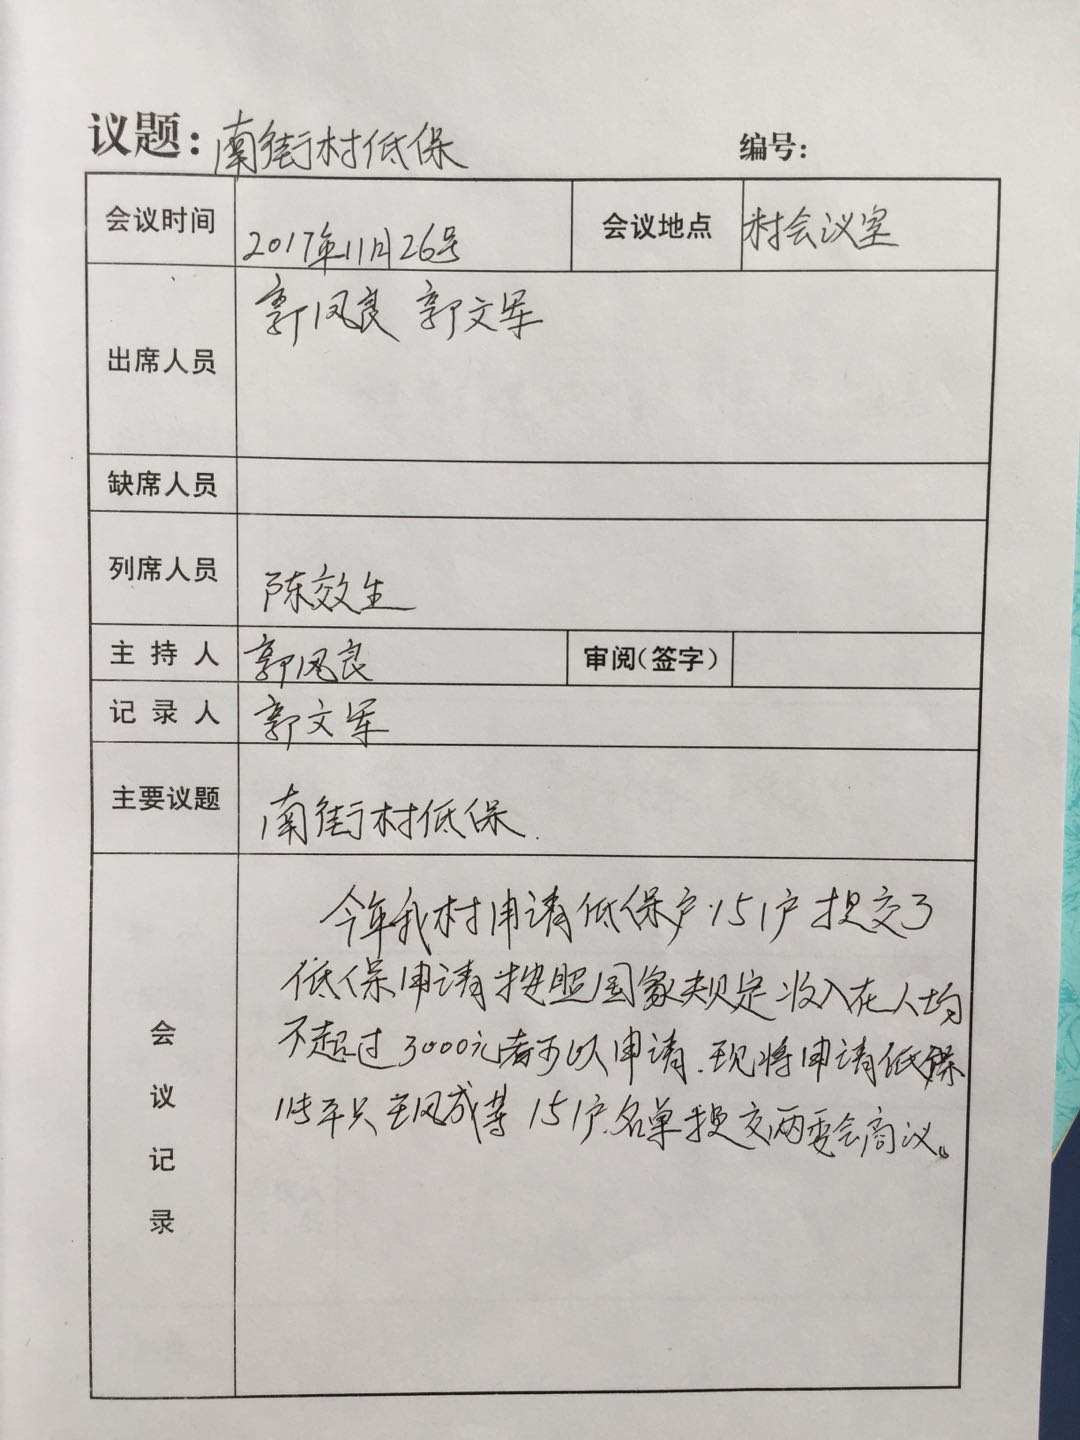 议题：南街村低保 编号：
会议时间 2017年11月26号 会议地点 村会议室
出席人员 郭凤良 郭文军
缺席人员
列席人员 陈效生
主持人 郭凤良 审阅（签字）
记录人 郭文军
主要议题 南街村低保.
会议记录
今年我村申请低保户151户提交了
低保申请按照国家规定收入在人均
不超过3000元者可以申请.现将申请低保
王凤成等151户名单提交两委会商议。